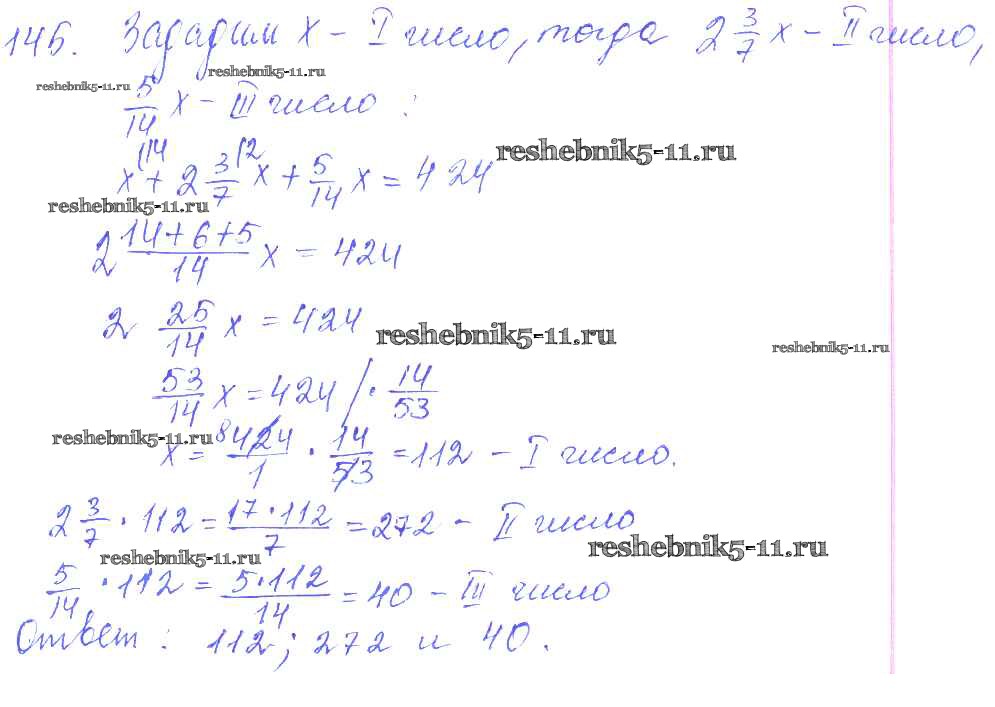 145. Зададим x – I число, тогда 2 3/7 x – II число,
reshebnik5-11.ru
reshebnik5-11.ru
5/14 x – III число :
reshebnik5-11.ru
x(14 + 2 3/7(2 x + 5/14 x = 424
reshebnik5-11.ru
2 (14+6+5)/14 x = 424
2 25/14 x = 424
reshebnik5-11.ru
reshebnik5-11.ru
53/14 x = 424 / · 14/53
reshebnik5-11.ru
x = 8 424/1 · 14/53 = 112 – I число.
2 3/7 · 112 = 17·112/7 = 272 – II число
reshebnik5-11.ru
reshebnik5-11.ru
5/14 · 112 = 5·112/14 = 40 – III число
Ответ : 112; 272 и 40.